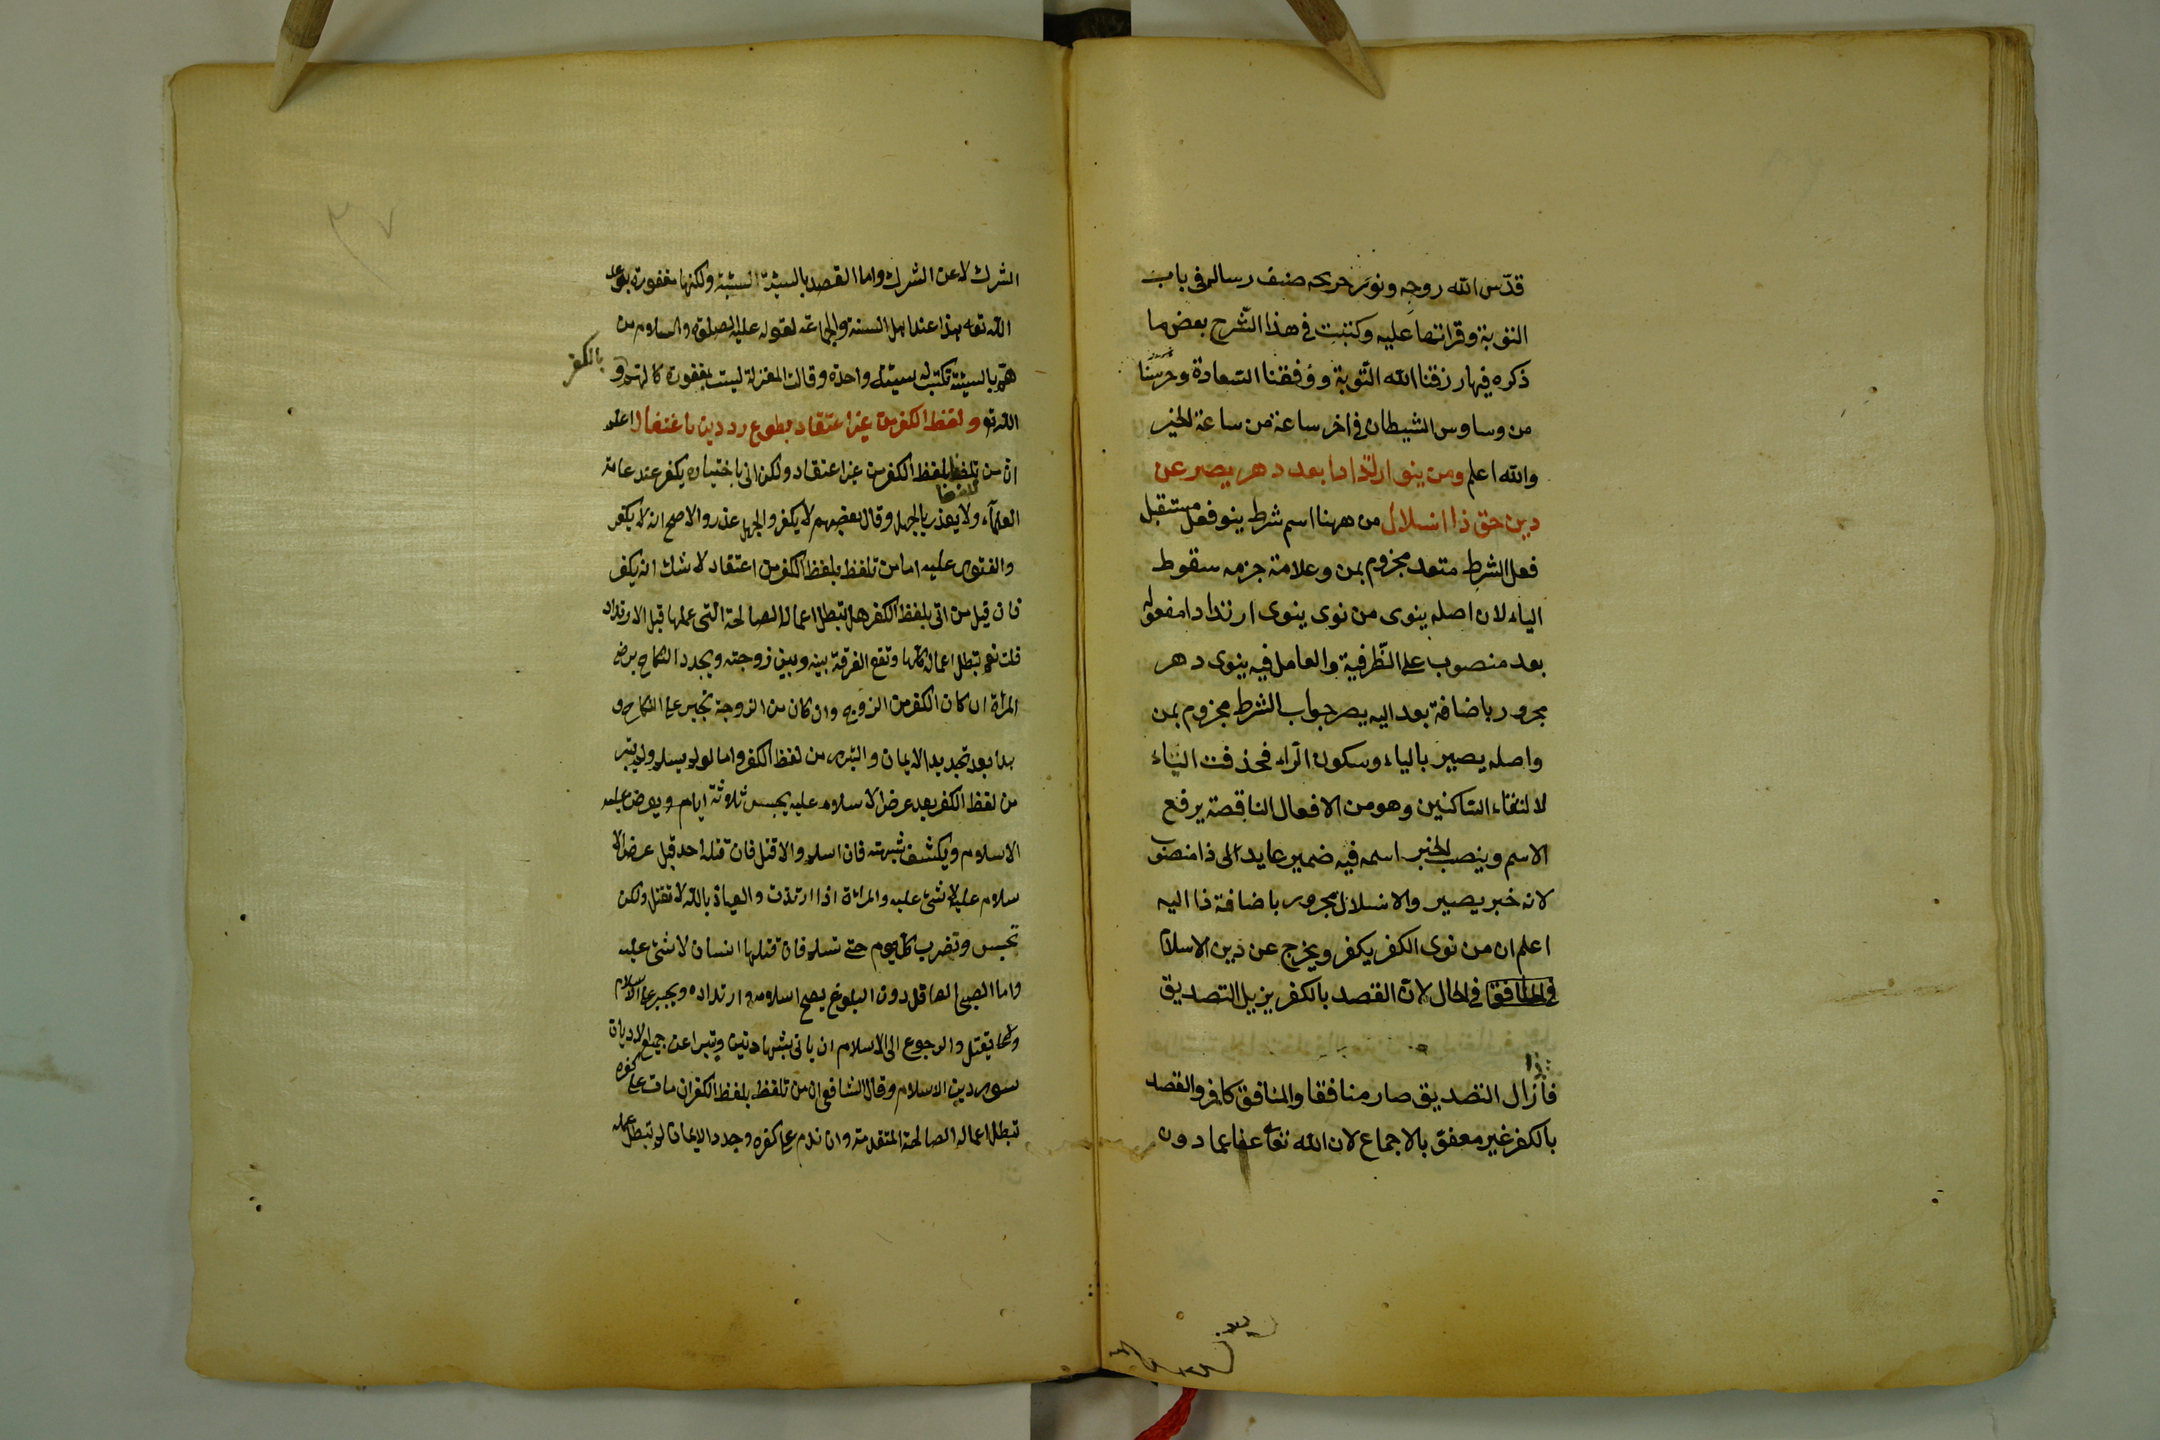 قدّس الله روحه ونور ضريحه صنف رسالة في باب
التوبة وقراتها عليه وكتبت في هذا الشرح بعض ما
ذكره فيها رزقنا الله التوبة ووفقنا السعادة وحرسنا
من وساوس الشيطان في اخر ساعة من ساعة الخير
والله اعلم ومن ينو ارتدادا بعد دهر يصر عن
دين حق ذا انسلال من ههنا اسم شرط ينو فعل مستقبل
فعل الشرط متعد مجزوم بمن وعلامة جزمه سقوط
الياء لان اصله ينوى من نوى ينوى ارتدادا مفعوله
بعد منصوب على الظرفية والعامل فيه ينوى دهر
مجرور باضافة بعد اليه يصر جواب الشرط مجزوم بمن
واصله يصير بالياء وسكون الراء فحذفت الياء
لالتقاء الساكنين وهو من الافعال الناقصة يرفع
الاسم وينصب الخبر اسمه فيه ضمير عايد الى ذا منصوب
لانه خبر يصير والانسلال مجرور باضافة ذا اليه
اعلم ان من نوى الكفر يكفر ويخرج عن دين الاسلام
في الحال لان القصد بالكفر يزيل التصديق
فاذا زال التصديق صار منافقا والمنافق كافر والقصد
بالكفر غير معفو بالاجماع لان الله تعا عفا عما دون
الشرك لا عن الشرك واما القصد بالسيئة السيئة ولكنها مغفورة بعون
الله تعه هذا عند اهل السنة والجماعة لقوله عليه الصلوة والسلام من
همّ بالسيئة تكتب له سيئة واحدة وقالت المعتزلة ليست بمغفورة كالهم و
بالكفر
الله تع ولفظ الكفر من غير اعتقاد بطوع رد دين باغتفال اعلم
ان من تلفظ بلفظ الكفر من غير اعتقاد ولكن اتى باختياره يكفر عند عامة
العلماء ولا يعذر بالجهل وقال بعضهم لا يكفر والجهل عذر والاصح انه لا يكفر
والفتوى عليه اما من تلفظ بلفظ الكفر من اعتقاد لا شك انه يكفر
فان قيل من اتى بلفظ الكفر هل تبطل اعماله الصالحة التي عملها قبل الارتداد
قلت نعم تبطل اعماله كلها وتقع الفرقة بينه وبين زوجته ويجدد النكاح برضى
المراة ان كان الكفر من الزوج وان كان من الزوجة تجبر على النكاح و
هذا بعد تجديد الايمان والتبرى من لفظ الكفر واما لو لم يسلم ولم يتبر
من لفظ الكفر بعد عرض الاسلام عليه يحبس ثلاثة ايام ويعرض عليه
الاسلام ويكشف شبهته فان اسلم والا قتل فان قتله احد قبل عرض الا
سلام عليه لا شئ عليه والمراة اذا ارتدت والعياذ بالله لا تقتل ولكن
تحبس وتضرب كل يوم حتى تسلم فان قتلها انسان لا شئ عليه
واما الصبى العاقل دون البلوغ يصح اسلامه وارتداده ويجبر على الاسلام
ولا يقتل والرجوع الى الاسلام ان ياتى بشهادتين وتبرا عن جميع الاديان
سوى دين الاسلام وقال الشافعى ان من تلفظ بلفظ الكفر ان مات على كفره
تبطل اعماله الصالحة المتقدمة وان ندم على كفره وجدد الايمان لم تبطل عمله